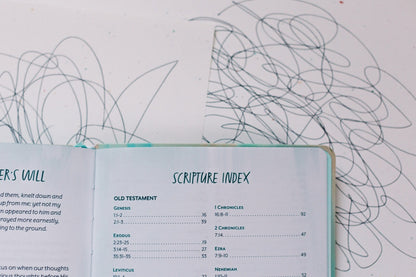 ER'S WILL
d them, knelt down and
up from me: yet not my
n appeared to him and
rayed more earnestly,
ing to the ground.
cus on when our thoughts
SCRIPTURE INDEX
OLD TESTAMENT
GENESIS
1:1-2 16
2:1-3 39
EXODUS
2:23-25 19
3:14-15 27
33:31-33 53
LEVITICUS
1 CHRONICLES
16:8-11 92
2 CHRONICLES
7:14 47
EZRA
7:9-10 49
NEHEMIAH